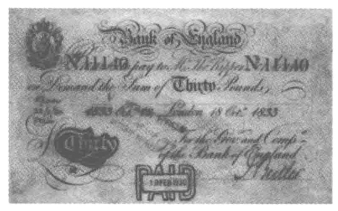 Bank of England
N.11140 pay to Mr. Tho. Rippon N.11140
on Demand the Sum of Thirty Pounds
1833 Oct. 18 London 18 Oct. 1833
For the Gov.r and Comp.a
Thirty
of the Bank of England
PAID